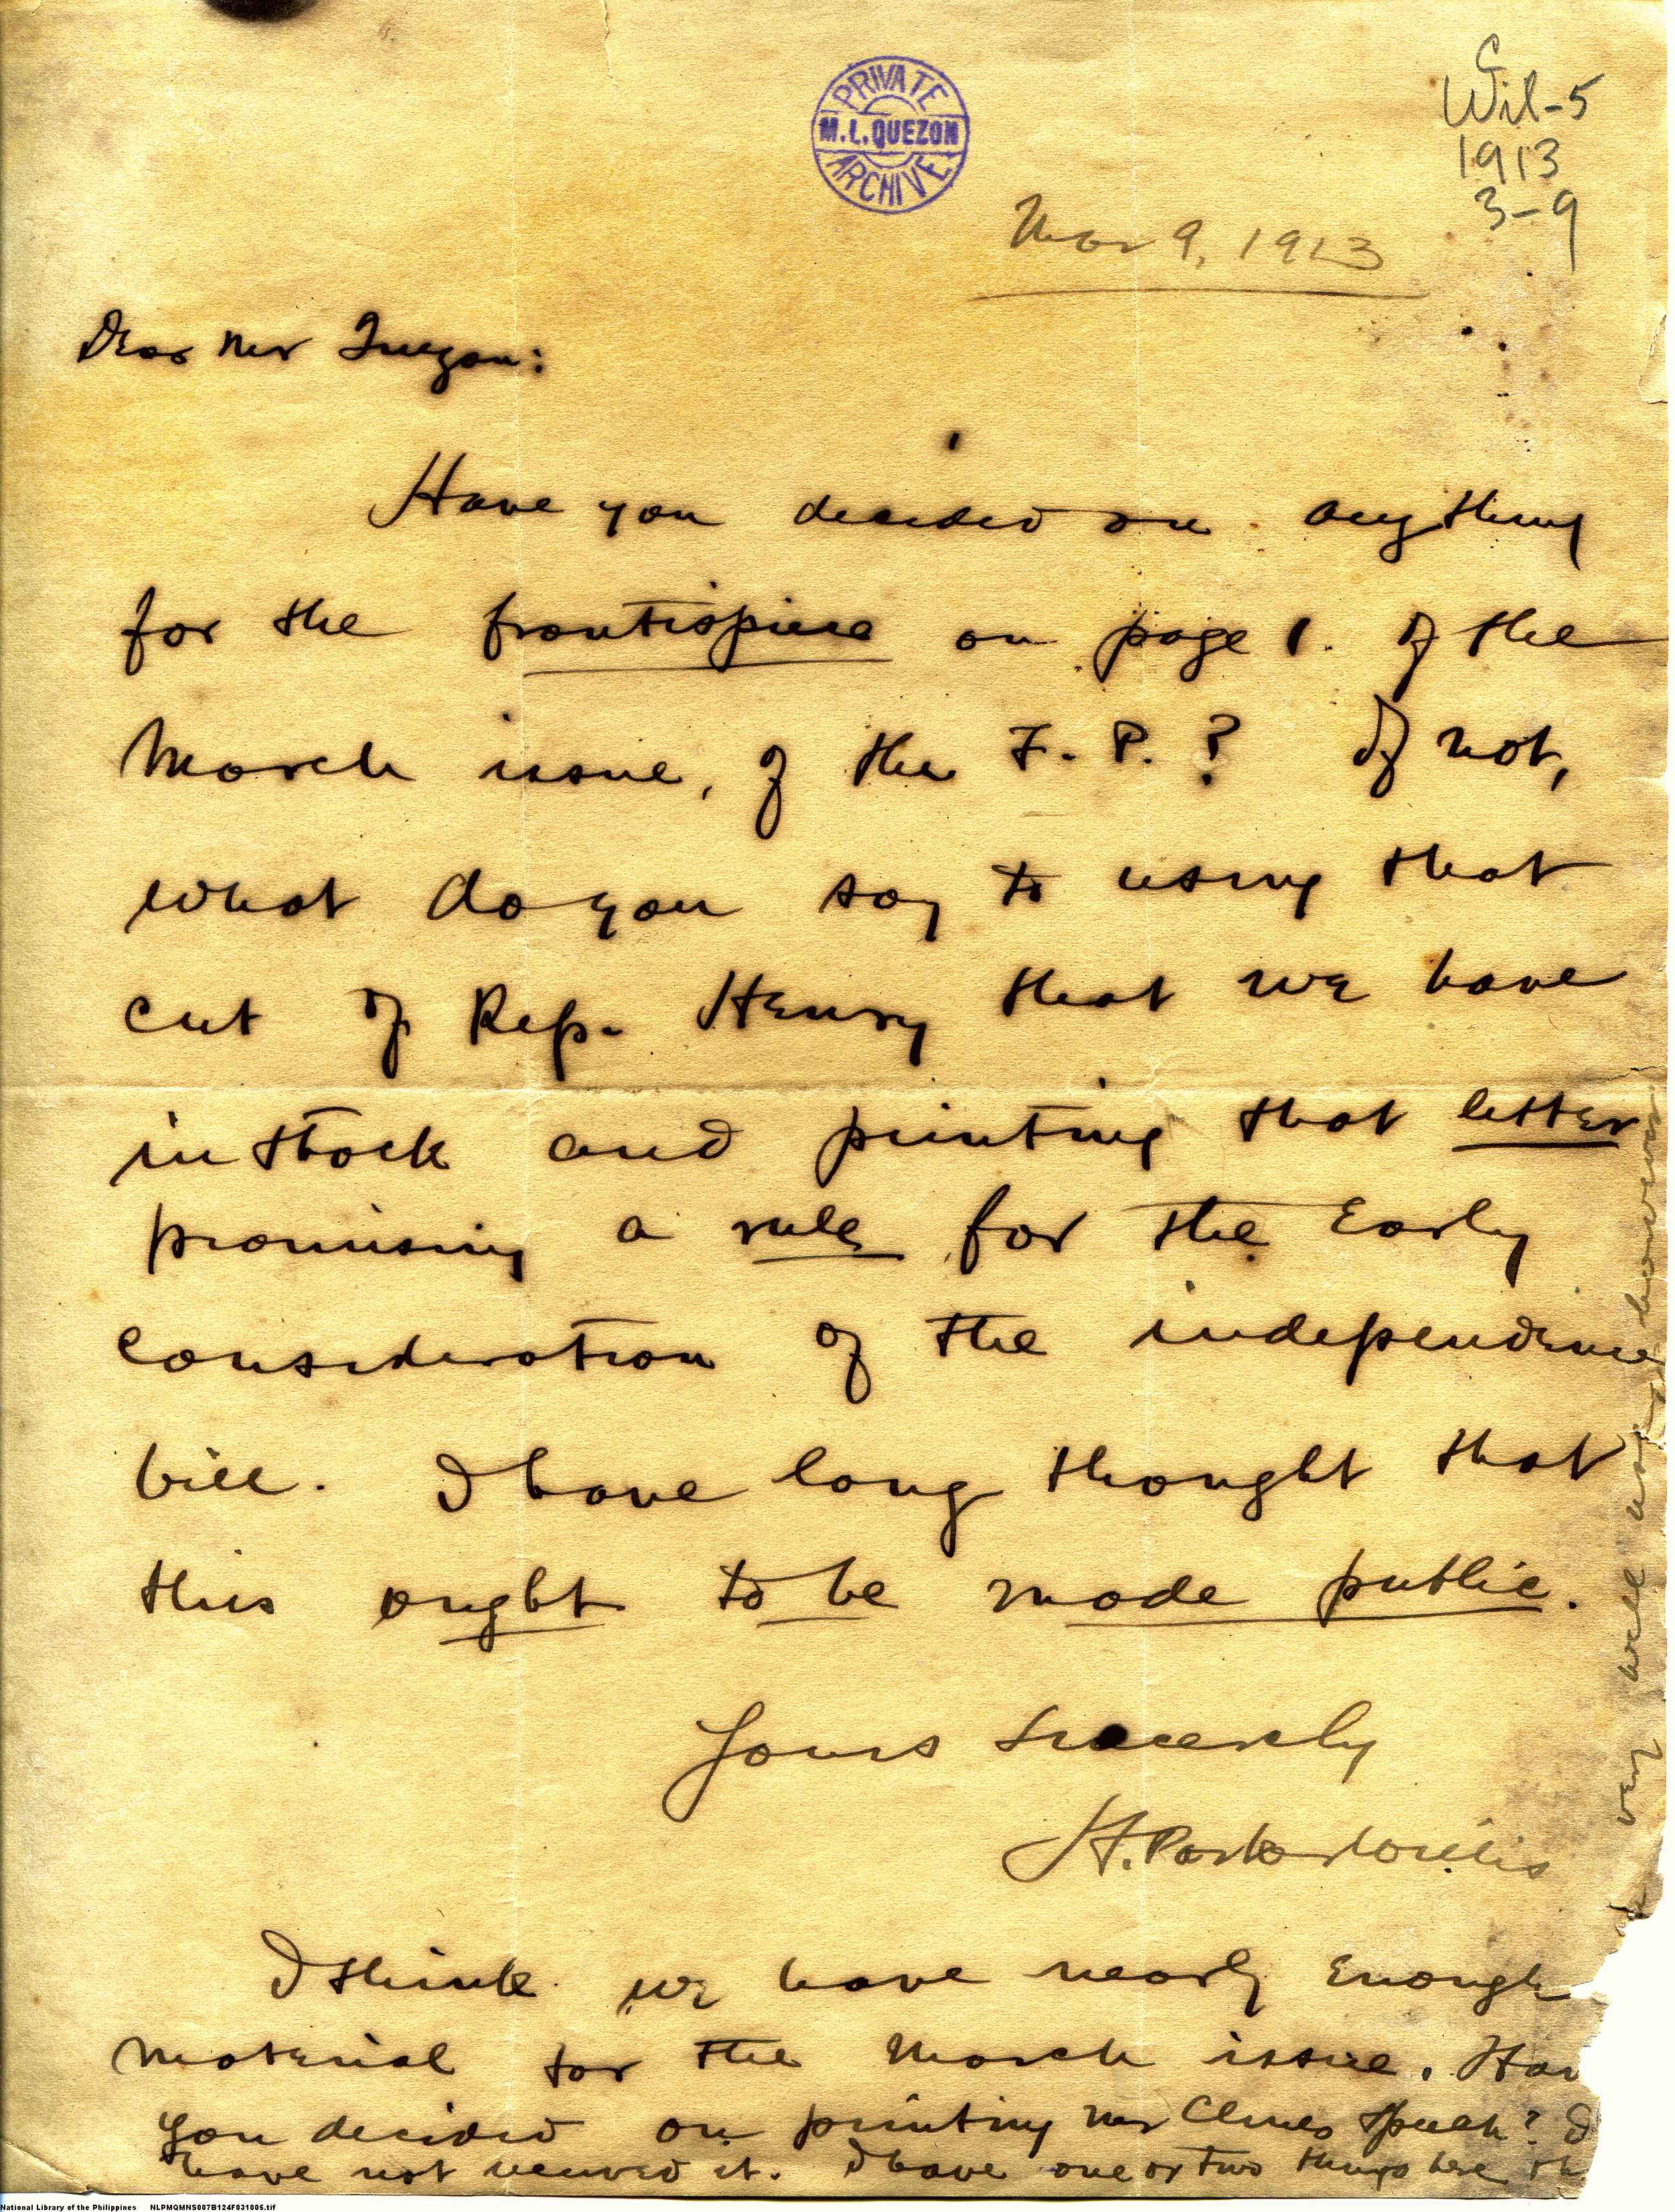 PRIVATE
M.L.QUEZON
ARCHIVE
C
Wil-5
1913
3-9
Mar 9, 1913
Dear Mr Quezon:
Have you decided on anything
for the frontispiece on page 1. of the
March issue, of the F. P.? If not,
what do you say to using that
cut of Rep. Henry that we have
in stock and printing that letter
promising a rule for the early
consideration of the independence
bill. I have long thought that
this ought to be made public.
Yours Sincerely
H. Parker Willis
I think we have nearly enough
material for the March issue. Hav
you decided on printing Mr Clines speech? I
have not received it. I have one or two things here th
very well use, however
National Library of the Philippines NLPMQMNS007B124F031005.tif